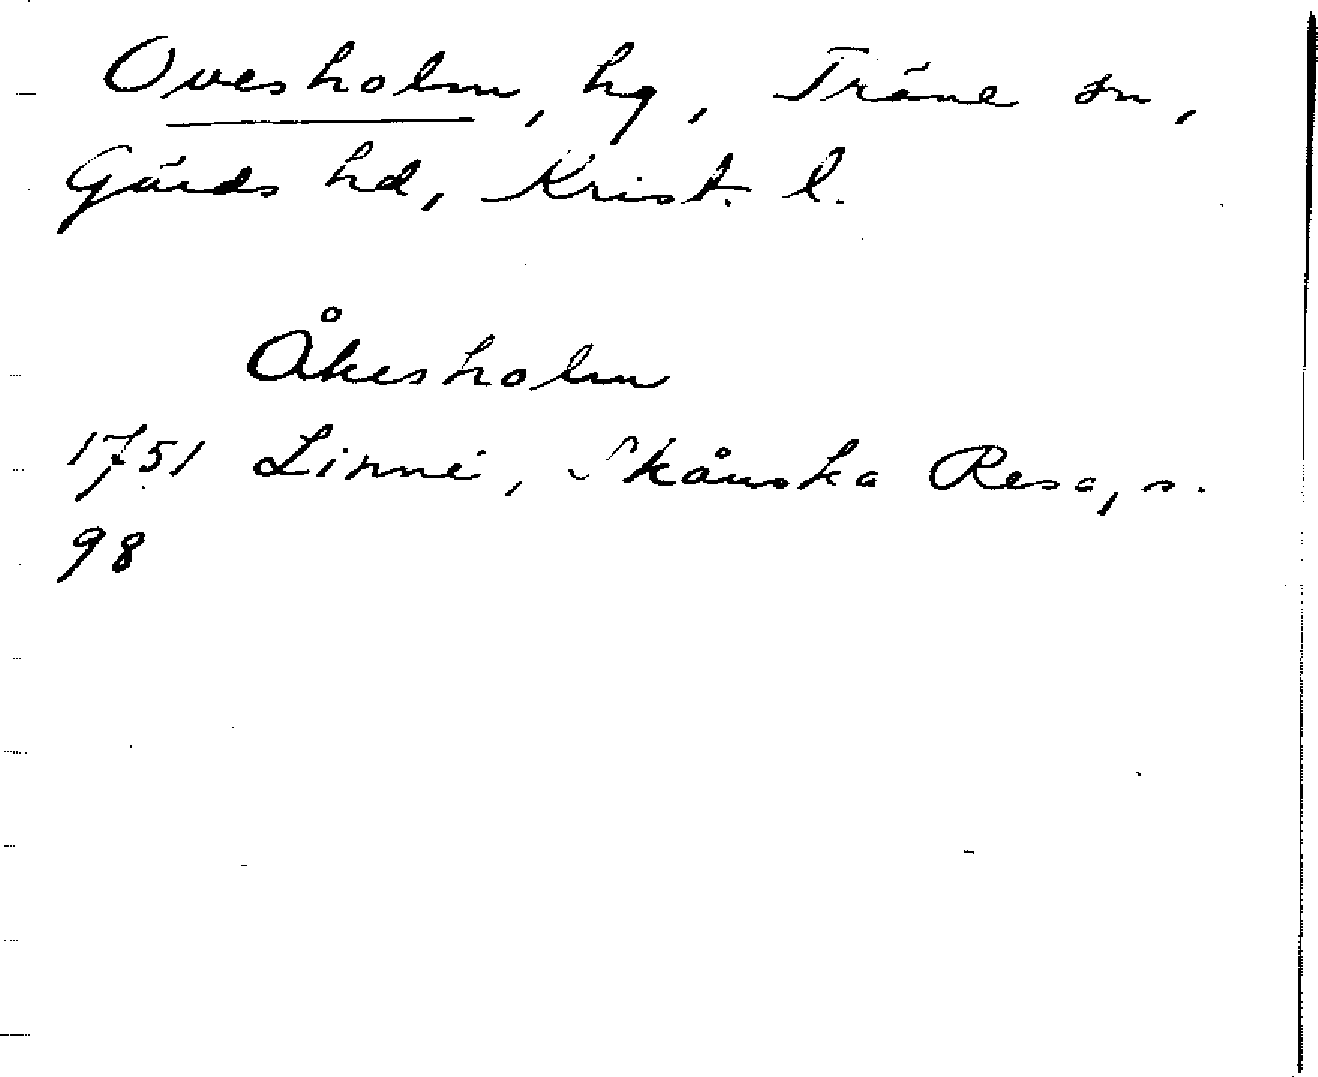 Ovesholm, hg, Träne sn,
Gärds hd, Krist. l.
Åkesholm
1751 Linné, Skånska Resa, s.
98